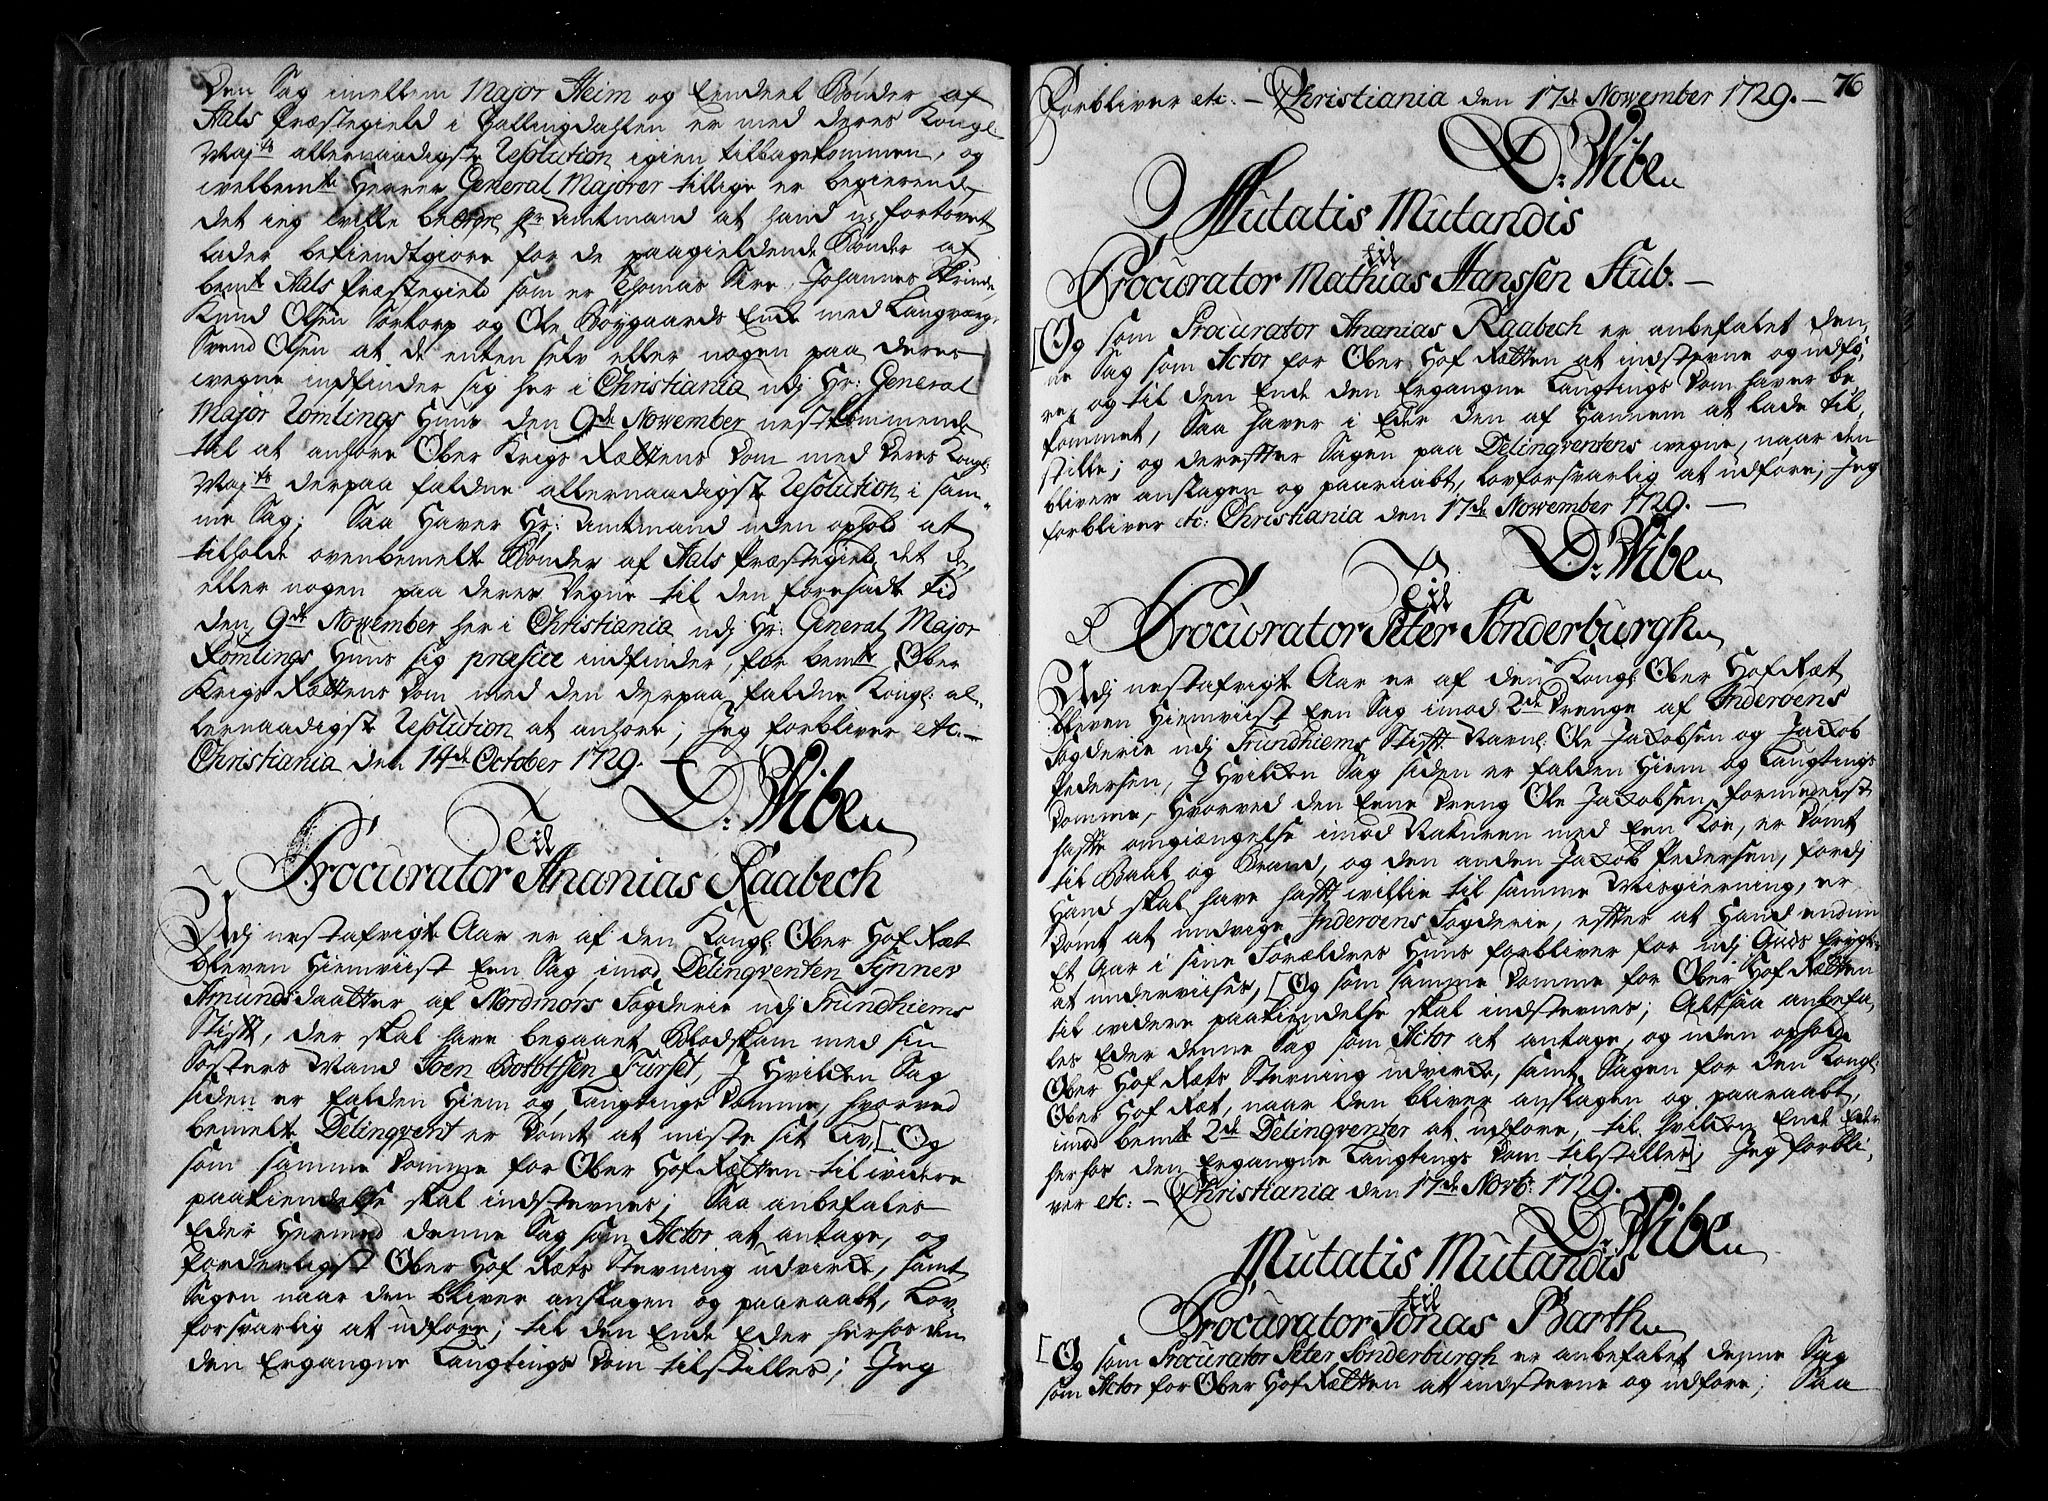 Den Sag imellem Major Heim og Eendeel Bønder af
Aals Præstegield i Hallingdahlen er med deres Kongl:
Maj:ts allernaadigste Resolution igien tilbagekommen, og
velbem:te Herrer General Majorer tillige er begierende
det ieg wille beordre Hr Amtmand at hand u-fortøvet
lader bekiendtgiøre for de paagieldende Bønder af
bem:te Aals Præstegield som er Thomas Sire, Johannes Skrinde,
Knud Olsen Sortorp og Ole Bøygaards Enke med Laugværge
Svend Olsen at de enten selv eller nogen paa deres
vegne indfinder sig her i Christiania udj Hr: General
Major Romlings Huus den 9de November nestkommende
til at anhøre Ober Krigs Rættens Dom med Deres Kongl:
Maj:ts derpaa faldne allernaadigste Resolution i sam-
me Sag; Saa Haver Hr: Amtmand uden ophold at
tilholde ovenbemelte Bønder af Aals Præstegield det de,
eller nogen paa deres Vegne til den foresadte tid
den 9de November her i Christiania udj Hr: General Major
Romlings Huus sig præsice indfinder, for bem:te Ober
Krigs Rættens Dom med den derpaa faldne Kongl: al-
lernaadigste Resolution at anhøre; Jeg forbliver etc: -
Christiania den 14de October 1729. -
D: Wibe
Til
Procurator Ananias Raabech
Udj nestafvigte Aar er af den Kongl: Ober Hof Ræt
bleven Hiemviist Een Sag imod Delinqventen Synnev
Amundsdaatter af Nordmørs Fogderie udj Trundhiems
Stift, der skal have begaaet Blodskam med sin
Søsters Mand Joen Botolfsen Furset, I Hvilken Sag
siden er falden Hiem og Laugtings Domme, hvorved
bemelte Delinqvent er Dømt at miste sit Liv, [Og
som samme Domme for Ober Hof Rætten til videre
paakiendelse skal indstevnes; Saa anbefales
Eder Hermed denne Sag som Actor at antage, og
forderligst Ober Hof Rets Stevning udvirke, samt
Sagen naar den bliver anslagen og paaraabt, Lov-
forsvarlig at udføre; til den Ende Eder herhos den
den Ergangne Laugtings Dom tilstilles; Jeg
76
forbliver etc: - Christiania den 17de November 1729. -
D: Wibe
Mutatis Mutandis
til
Procurator Mathias Hanssen Stub. -
[Og som Procurator Ananias Raabech er anbefalet den-
ne Sag som Actor for Ober Hof Rætten at indstevne og udfø-
re, og til den Ende den Ergangne Laugtings Dom haver be
kommet, Saa haver i Eder den af Hannem at lade til-
stille; og derefter Sagen paa Delinqventens vegne, naar den
bliver anslagen og paaraabt, lovforsvarlig at udføre; Jeg
forbliver etc: Christiania den 17de November 1729. -
D: Wibe
Til
Procurator Peter Sonderburgh
Udj nestafvigte Aar er af den Kongl: Ober Hof Ræt
bleven Hiemviist Een Sag imod 2de Drenge af Inderøens
Fogderie udj Trundhiems Stift Navnl: Ole Jacobsen og Jacob
Pedersen, I Hvilken Sag siden er falden Hiem og Laugtings
Domme, Hvorved den Eene Dreng Ole Jacobsen, formedelst
hafte omgiengelse imod Naturen med Een Koe, er Dømt
til Baal og Brand, og den anden Jacob Pedersen, fordj
Hand skal have haft willie til samme Misgierning, er
Dømt at undvige Inderøens Fogderie, efter at Hand endnu
Et Aar i sine Forældres Huus forbliver for udj Guds frygt
at underviises, [Og som samme Domme for Ober Hof Rætten
til videre paakiendelse skal indstevnes; Altsaa anbefa-
les Eder denne Sag som Actor at antage, og uden ophold
Ober Hof Rets Stevning udvirke, samt Sagen for den Kongl:
Ober Hof Ret, naar den bliver anslagen og paaraabt,
imod bem:te 2de Delinqventer at udføre, til hvilken Ende Eder
herhos den Ergangne Laugtings Dom tilstilles]; Jeg forbli-
ver etc: - Christiania den 17de Novb: 1729.
D: Wibe
Mutatis Mutandis
til
Procurator Jonas Barth
[Og som Procurator Peter Sonderburgh er anbefalet denne Sag
som Actor for Ober Hof Rætten at indstevne og udføre; Saa